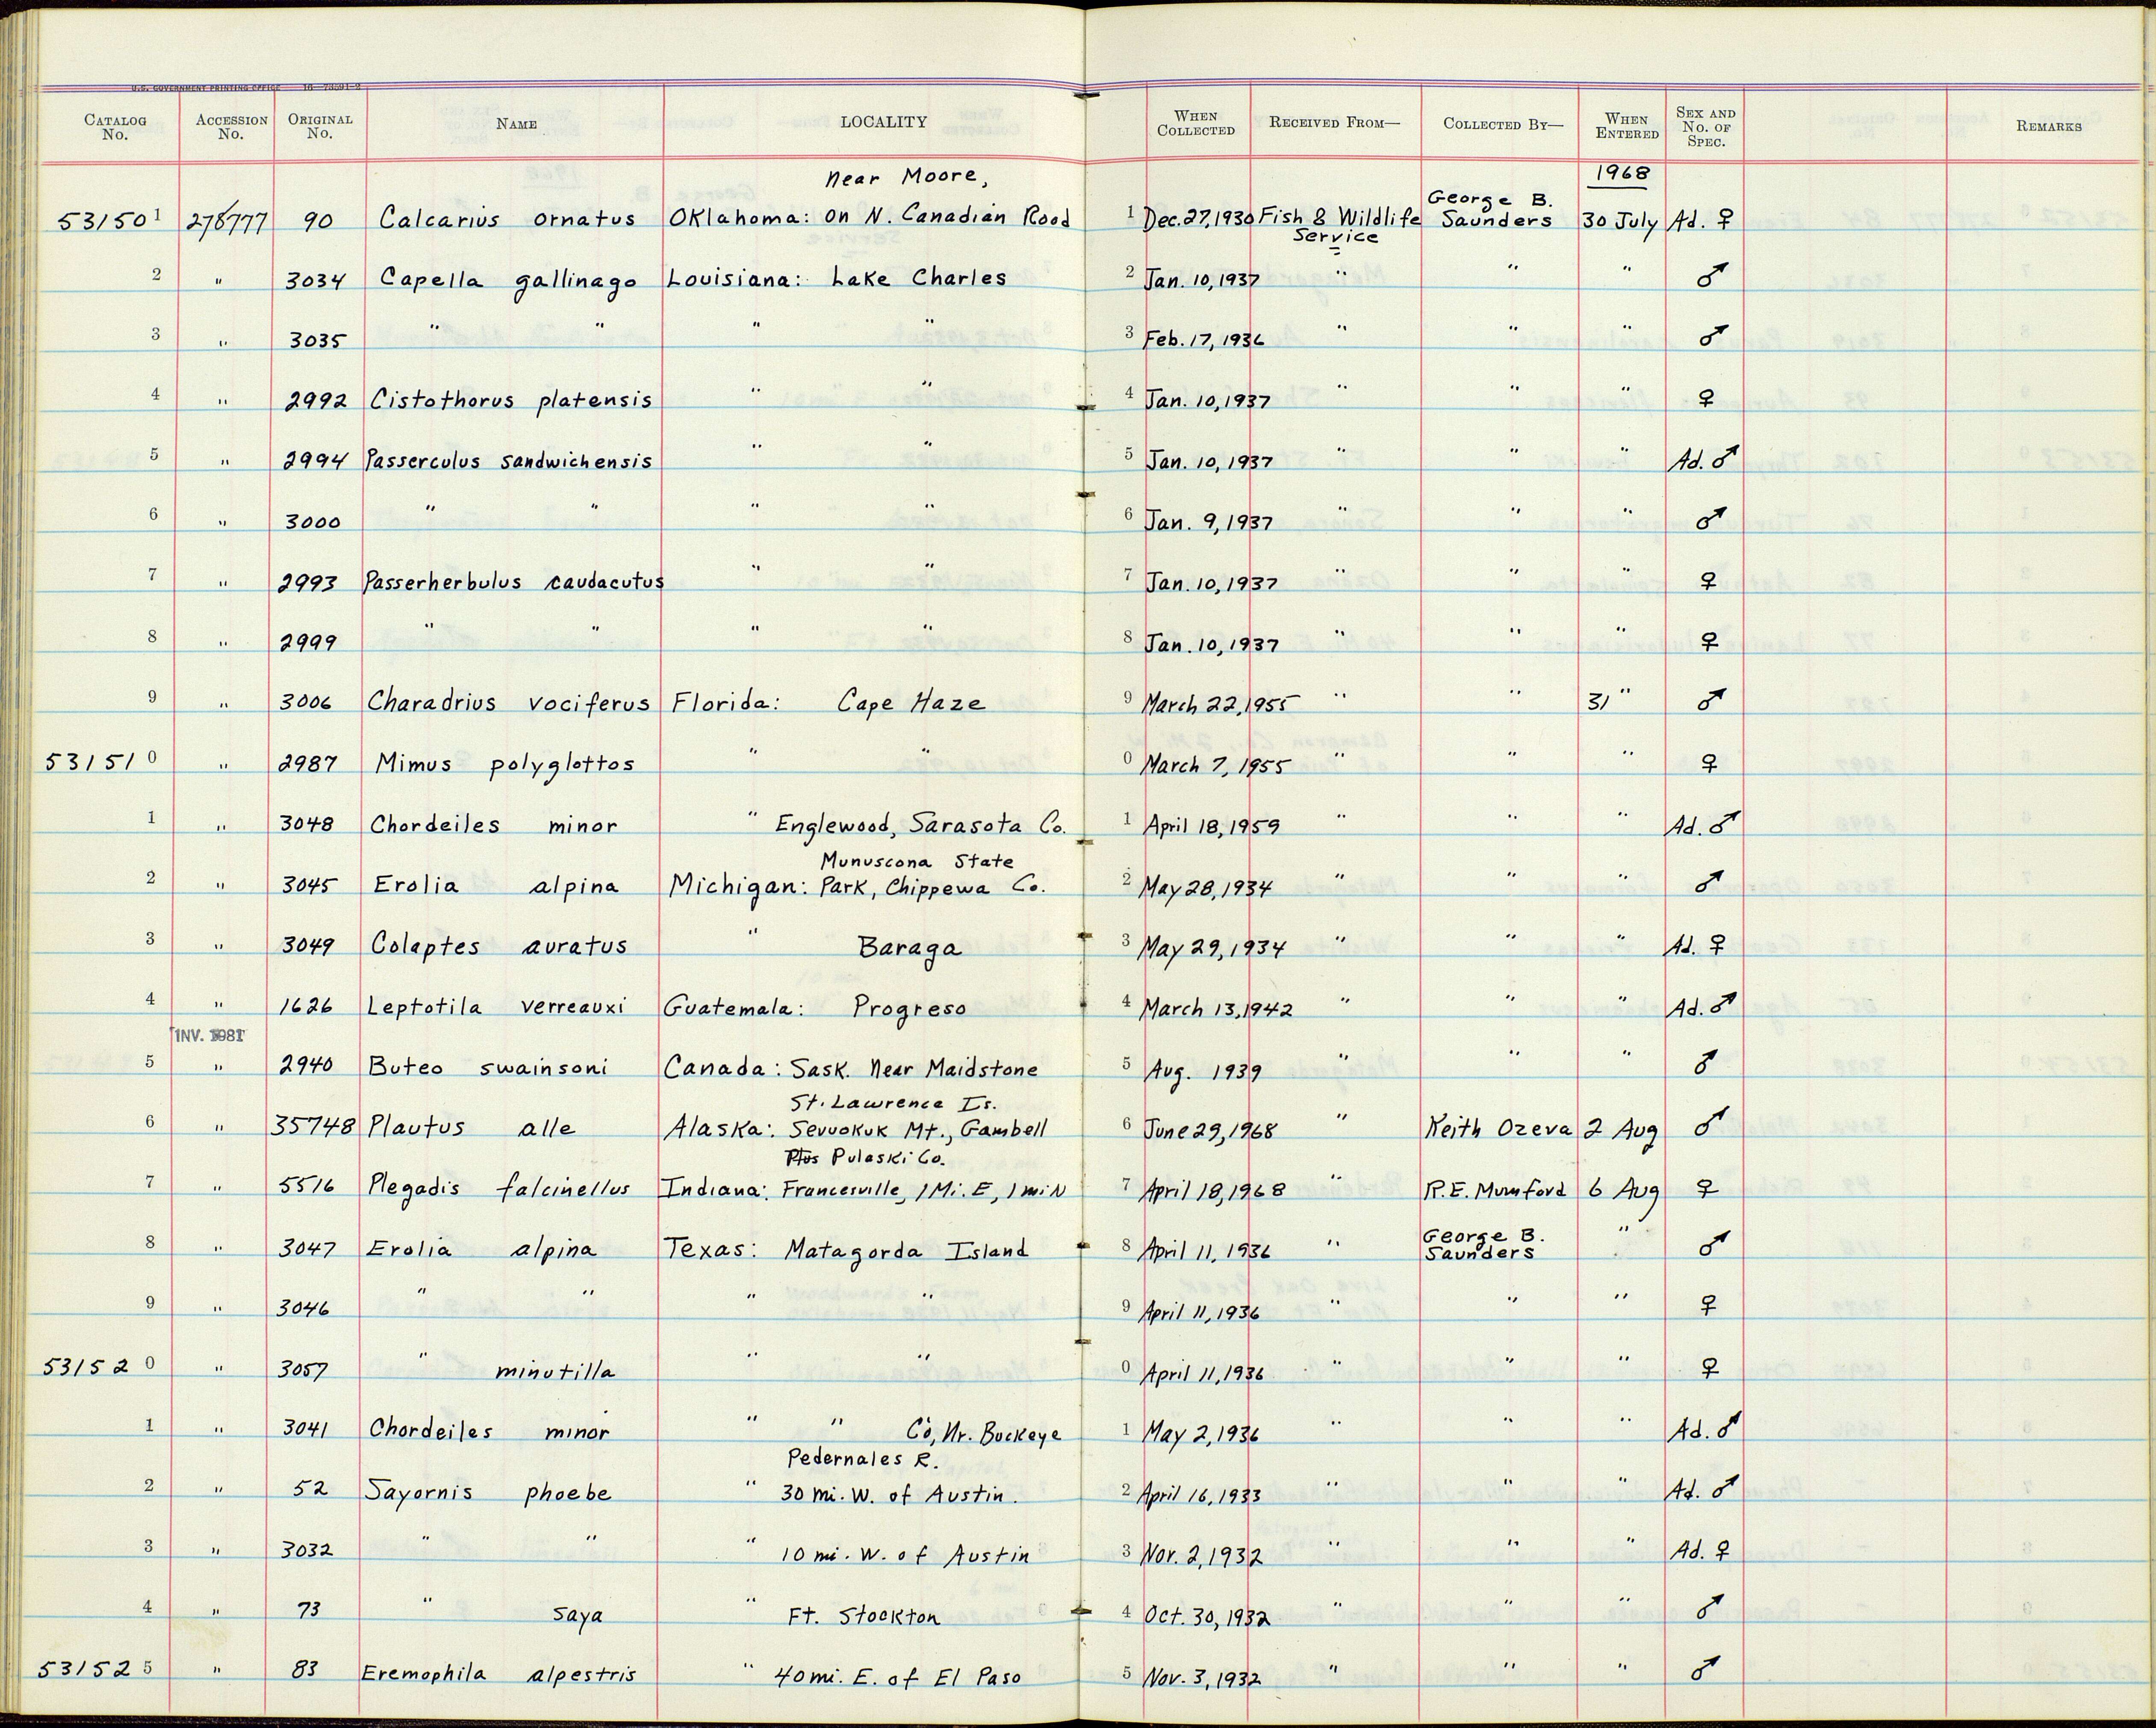 U.S. GOVERNMENT PRINTING OFFICE
CATALOG No. ACCESSION No. ORIGINAL No. NAME LOCALITY WHEN COLLECTED RECEIVED FROM— COLLECTED BY— WHEN ENTERED SEX AND No. OF SPEC. REMARKS
Near Moore, 1968
531501 278777 90 Calcarius ornatus Oklahoma: on N. Canadian Road 1 Dec. 27, 1930 Fish & Wildlife Service George B. Saunders 30 July Ad. ♀
2 " 3034 Capella gallinago Louisiana: Lake Charles 2 Jan. 10, 1937 " " " ♂
3 " 3035 " " " " 3 Feb. 17, 1936 " " " ♂
4 " 2992 Cistothorus platensis " " 4 Jan. 10, 1937 " " " ♀
5 " 2994 Passerculus sandwichensis " " 5 Jan. 10, 1937 " " " Ad. ♂
6 " 3000 " " " " 6 Jan. 9, 1937 " " " ♂
7 " 2993 Passerherbulus caudacutus " " 7 Jan. 10, 1937 " " " ♀
8 " 2999 " " " " 8 Jan. 10, 1937 " " " ♀
9 " 3006 Charadrius vociferus Florida: Cape Haze 9 March 22, 1955 " " 31 " ♂
531510 " 2987 Mimus polyglottos " " 0 March 7, 1955 " " " ♀
1 " 3048 Chordeiles minor " Englewood, Sarasota Co. 1 April 18, 1959 " " " Ad. ♂
Munuscona State
2 " 3045 Erolia alpina Michigan: Park, Chippewa Co. 2 May 28, 1934 " " " ♂
3 " 3049 Colaptes auratus " Baraga 3 May 29, 1934 " " " Ad. ♀
4 " 1626 Leptotila verreauxi Guatemala: Progreso 4 March 13, 1942 " " " Ad. ♂
INV. 1981
5 " 2940 Buteo swainsoni Canada: Sask. Near Maidstone 5 Aug. 1939 " " " ♂
St. Lawrence Is.
6 " 35748 Plautus alle Alaska: Sevuokuk Mt., Gambell 6 June 29, 1968 " Keith Ozeva 2 Aug ♂
Pulaski Co.
7 " 5516 Plegadis falcinellus Indiana: Francesville, 1 Mi. E, 1 mi N 7 April 18, 1968 " R.E. Mumford 6 Aug ♀
8 " 3047 Erolia alpina Texas: Matagorda Island 8 April 11, 1936 " George B. Saunders " ♂
9 " 3046 " " " " 9 April 11, 1936 " " " ♀
531520 " 3057 " minutilla " " 0 April 11, 1936 " " " ♀
1 " 3041 Chordeiles minor " " Co, Nr. Buckeye 1 May 2, 1936 " " " Ad. ♂
Pedernales R.
2 " 52 Sayornis phoebe " 30 mi. W. of Austin. 2 April 16, 1933 " " " Ad. ♂
3 " 3032 " " " 10 mi. W. of Austin 3 Nov. 2, 1932 " " " Ad. ♀
4 " 73 " saya " Ft. Stockton 4 Oct. 30, 1932 " " " ♂
531525 " 83 Eremophila alpestris " 40 mi. E. of El Paso 5 Nov. 3, 1932 " " " ♂